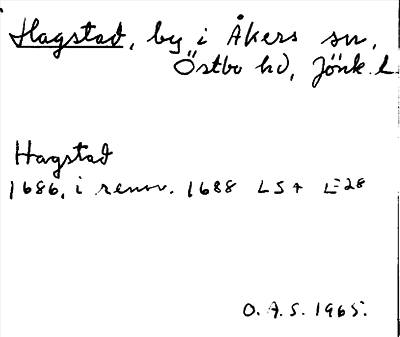 Hagstad, by i Åkers sn,
Östbo hd, Jönk. l.
Hagstad
1686, i renov. 1688 LSA E28
O. A. S. 1965.